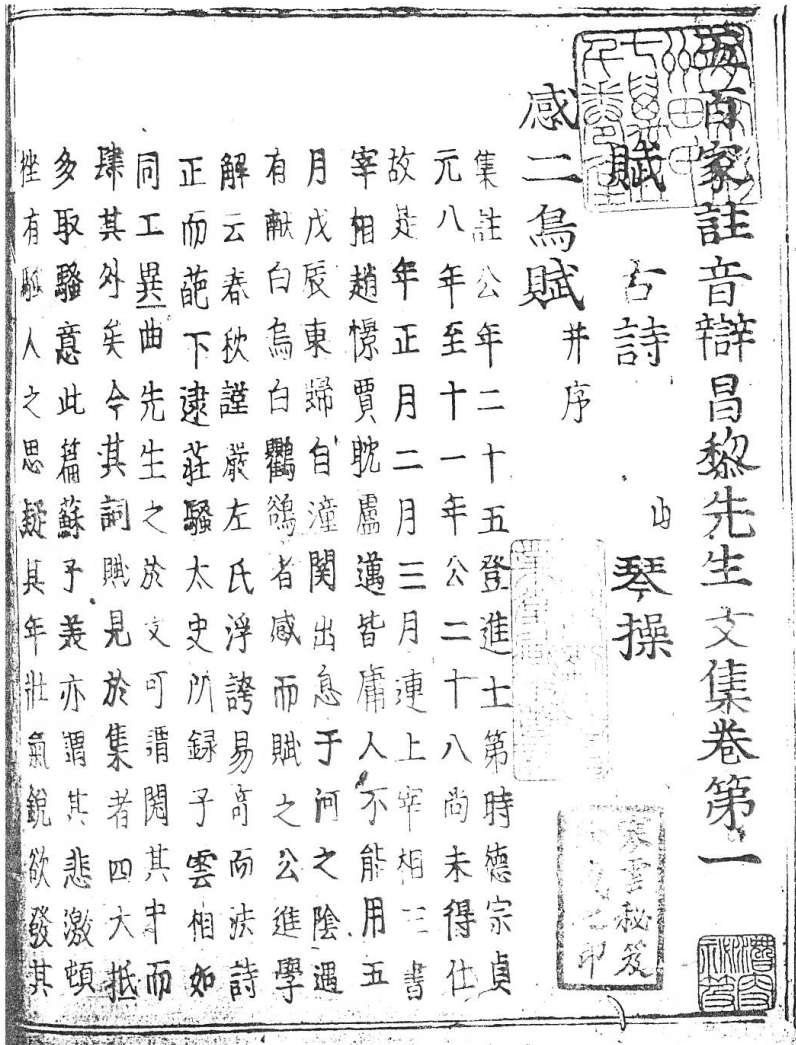 五百家註音辯昌黎先生文集卷第一
賦 古詩 琴操
感二鳥賦 并序
集註公年二十五登進士第時德宗貞
元八年至十一年公二十八尚未得仕
故是年正月二月三月連上宰相三書
宰相趙憬賈耽盧邁皆庸人不能用五
月戊辰東歸自潼関出息于河之陰遇
有献白烏白鸜鵒者感而賦之公進學
解云春秋謹嚴左氏浮誇易奇而法詩
正而葩下逮莊騷太史所録子雲相如
同工異曲先生之於文可謂閎其中而
肆其外矣今其詞賦見於集者四大抵
多取騷意此篇蘇子美亦謂其悲激頓
挫有騷人之思疑其年壯氣銳欲發其